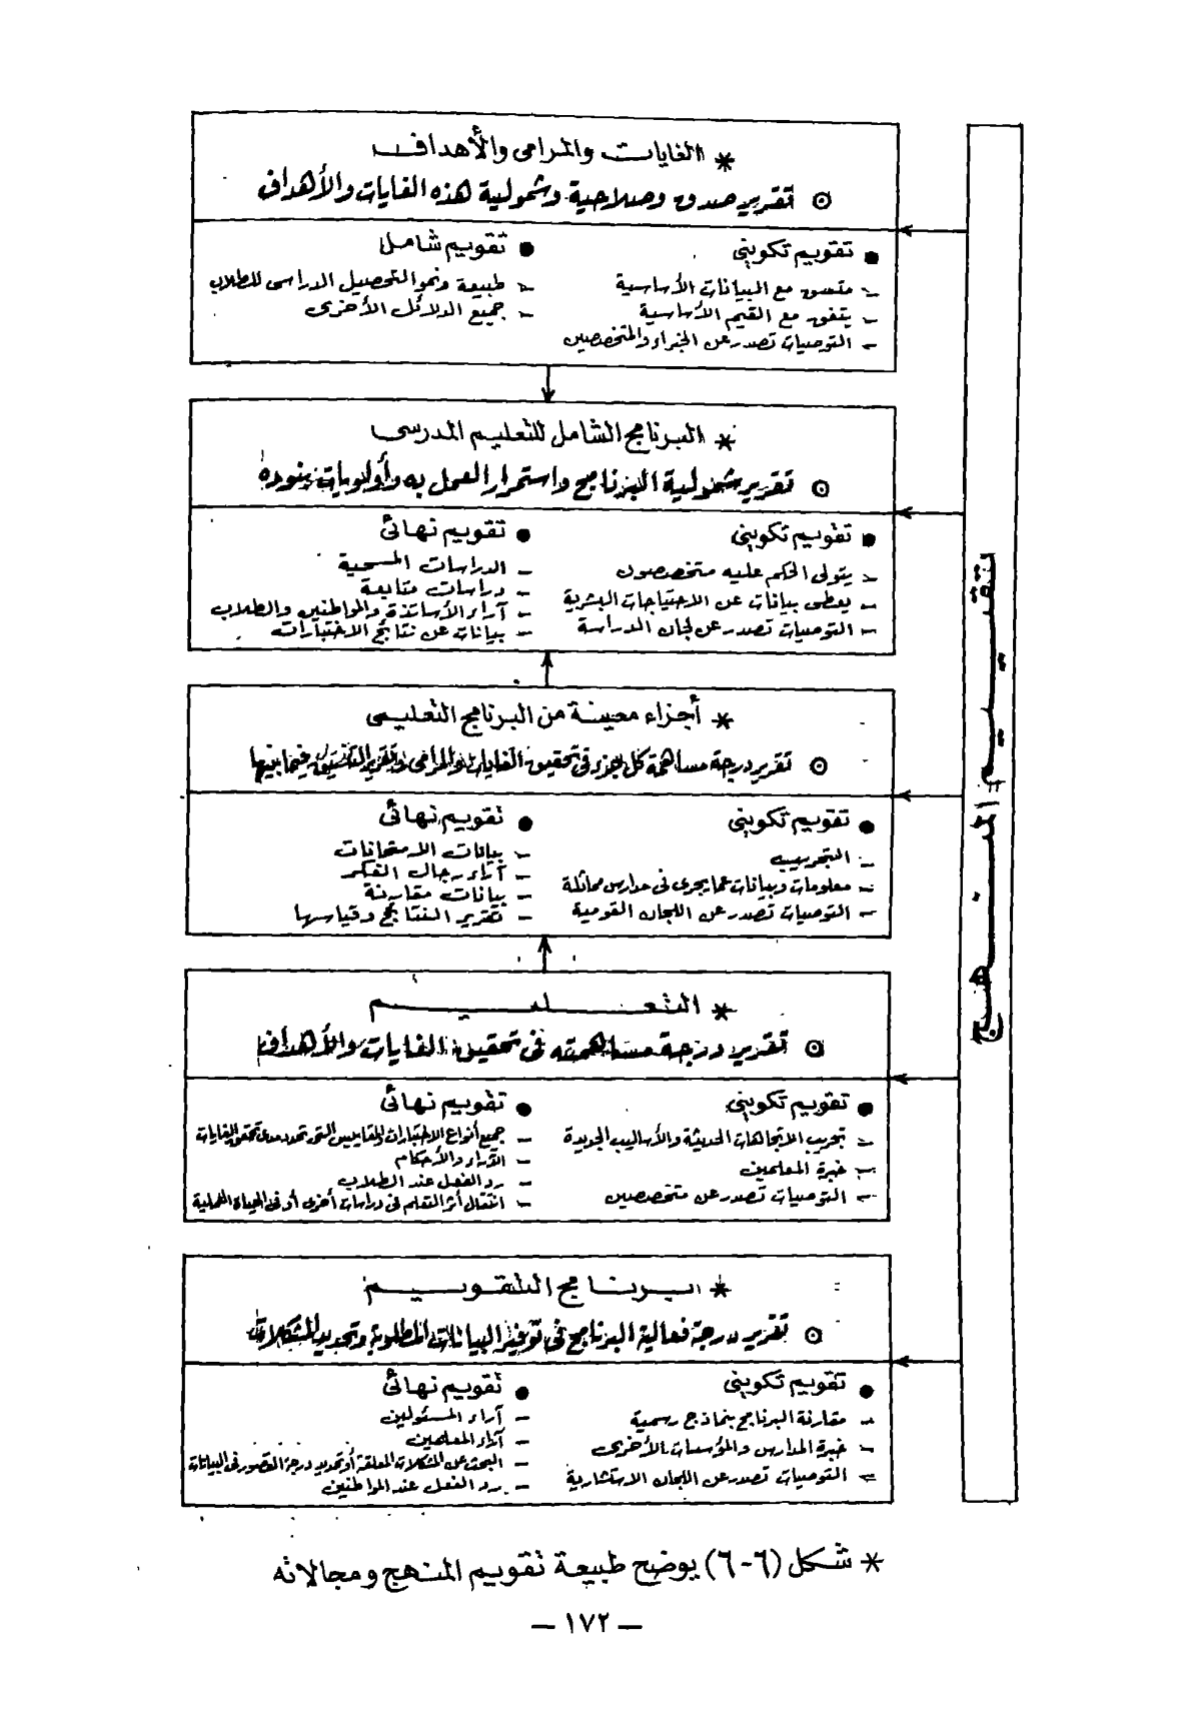 * الغايات والمرامى والأهداف
⊙ تقرير صدق وصلاحية وشمولية هذه الغايات والأهداف
● تقويم تكوينى
– متسق مع البيانات الأساسية
– يتفق مع القيم الأساسية
– التوصيات تصدر عن الخبراء والمتخصصين
● تقويم شامل
– طبيعة ونمو التحصيل الدراسى للطلاب
– جميع الدلائل الأخرى
* البرنامج الشامل للتعليم المدرسى
⊙ تقرير شمولية البرنامج واستمرار العمل به وأولويات بنوده
● تقويم تكوينى
– يتولى الحكم عليه متخصصون
– يعطى بيانات عن الاحتياجات البشرية
– التوصيات تصدر عن لجان الدراسة
● تقويم نهائى
– الدراسات المسحية
– دراسات متابعة
– آراء الأساتذة والمواطنين والطلاب
– بيانات عن نتائج الاختبارات
* أجزاء معينة من البرنامج التعليمى
⊙ تقرير درجة مساهمة كل جزء فى تحقيق الغايات والمرامى وتقرير التنسيق فيما بينها
● تقويم تكوينى
– التجريب
– معلومات وبيانات عما يجرى فى مدارس مماثلة
– التوصيات تصدر عن اللجان القومية
● تقويم نهائى
– بيانات الامتحانات
– آراء رجال الفكر
– بيانات مقارنة
– تقرير النتائج وقياسها
* التعليم
⊙ تقرير درجة مساهمته فى تحقيق الغايات والأهداف
● تقويم تكوينى
– تجريب الاتجاهات الحديثة والأساليب الجديدة
– خبرة المعلمين
– التوصيات تصدر عن متخصصين
● تقويم نهائى
– جميع أنواع الاختبارات والمقاييس التى تحدد مدى تحقق الغايات
– الآراء والأحكام
– رد الفعل عند الطلاب
– انتقال أثر التعلم فى دراسات أخرى أو فى الحياة العملية
* برنامج التقويم
⊙ تقرير درجة فعالية البرنامج فى توفير البيانات المطلوبة وتحديد المشكلات
● تقويم تكوينى
– مقارنة البرنامج بنماذج رسمية
– خبرة المدارس والمؤسسات الأخرى
– التوصيات تصدر عن اللجان الاستشارية
● تقويم نهائى
– آراء المسئولين
– آراء المعلمين
– البحث عن المشكلات المعلقة أو تحديد درجة القصور فى البيانات
– رد الفعل عند المواطنين
تقييم المنهج
* شكل (٦-٦) يوضح طبيعة تقويم المنهج ومجالاته
— ١٧٢ —